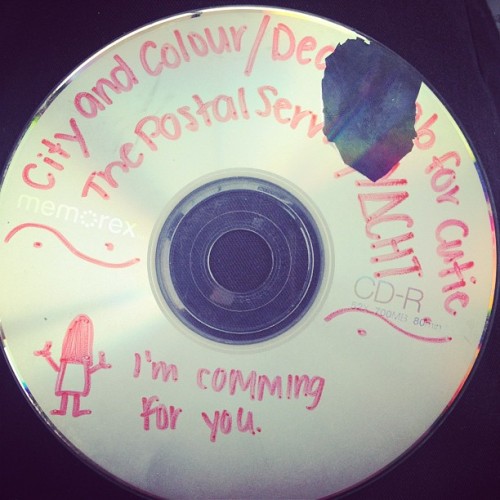 City and Colour/Dea b for Cutie
The Postal Serv YΔCHT
memorex
CD-R
700MB 80min
I'm comming
for you.